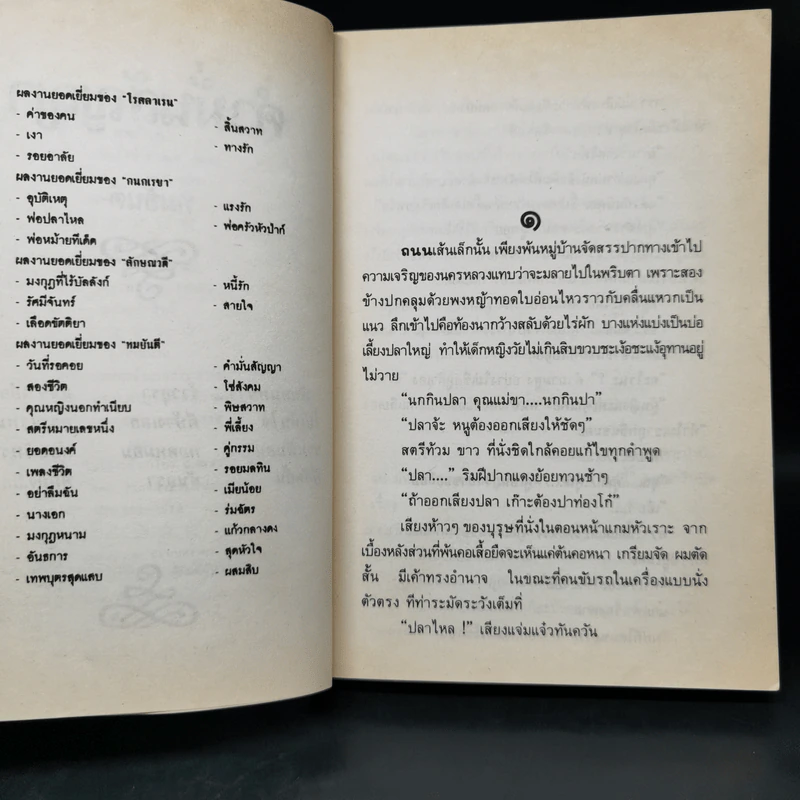 ผลงานยอดเยี่ยมของ "โรสลาเรน"
- ค่าของคน
- สิ้นสวาท
- เงา
- ทางรัก
- รอยอาลัย
ผลงานยอดเยี่ยมของ "กนกเรขา"
- อุบัติเหตุ
- แรงรัก
- พ่อปลาไหล
- พ่อครัวหัวป่าก์
- พ่อหม้ายทีเด็ด
ผลงานยอดเยี่ยมของ "ลักษณวดี"
- มงกุฎที่ไร้บัลลังก์
- หนี้รัก
- รัศมีจันทร์
- สายใจ
- เลือดขัตติยา
ผลงานยอดเยี่ยมของ "ทมยันตี"
- วันที่รอคอย
- คำมั่นสัญญา
- สองชีวิต
- ใช่สังคม
- คุณหญิงนอกทำเนียบ
- พิษสวาท
- สตรีหมายเลขหนึ่ง
- พี่เลี้ยง
- ยอดอนงค์
- คู่กรรม
- เพลงชีวิต
- รอยมลทิน
- อย่าลืมฉัน
- เมียน้อย
- นางเอก
- ร่มฉัตร
- มงกุฎหนาม
- แก้วกลางดง
- อันธการ
- สุดหัวใจ
- เทพบุตรสุดแสบ
- ผสมสิบ
๑
ถนนเส้นเล็กนั้น เพียงพ้นหมู่บ้านจัดสรรปากทางเข้าไป
ความเจริญของนครหลวงแทบว่าจะมลายไปในพริบตา เพราะสอง
ข้างปกคลุมด้วยพงหญ้าทอดใบอ่อนไหวราวกับคลื่นแหวกเป็น
แนว ลึกเข้าไปคือท้องนากว้างสลับด้วยไร่ผัก บางแห่งแบ่งเป็นบ่อ
เลี้ยงปลาใหญ่ ทำให้เด็กหญิงวัยไม่เกินสิบขวบชะเง้อชะแง้อุทานอยู่
ไม่วาย
"นกกินปลา คุณแม่ขา....นกกินปา"
"ปลาจ้ะ หนูต้องออกเสียงให้ชัดๆ"
สตรีท้วม ขาว ที่นั่งชิดใกล้คอยแก้ไขทุกคำพูด
"ปลา...." ริมฝีปากแดงย้อยทวนช้าๆ
"ถ้าออกเสียงปลา เก๊าะต้องปาท่องโก๋"
เสียงห้าวๆ ของบุรุษที่นั่งในตอนหน้าแกมหัวเราะ จาก
เบื้องหลังส่วนที่พ้นคอเสื้อยืดจะเห็นแค่ต้นคอหนา เกรียมจัด ผมตัด
สั้น มีเค้าทรงอำนาจ ในขณะที่คนขับรถในเครื่องแบบนั่ง
ตัวตรง ทีท่าระมัดระวังเต็มที่
"ปลาไหล !" เสียงแจ่มแจ๋วทันควัน